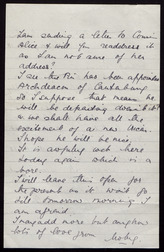 I am sending a letter to Cousin
Alice & will you readdress it
as I am not sure of her
address?
I see the Rev. has been appointed
Archdeacon of Canterbury
So I suppose that means he
will be departing
& we shall have all the
excitement of a new Vicar.
I hope he will be nice.
It is awfully wet here
today again which is a
bore.
I will leave this open for
the present as it won't go
till tomorrow morning I
am afraid.
Imagine more but anyhow
lots of love from